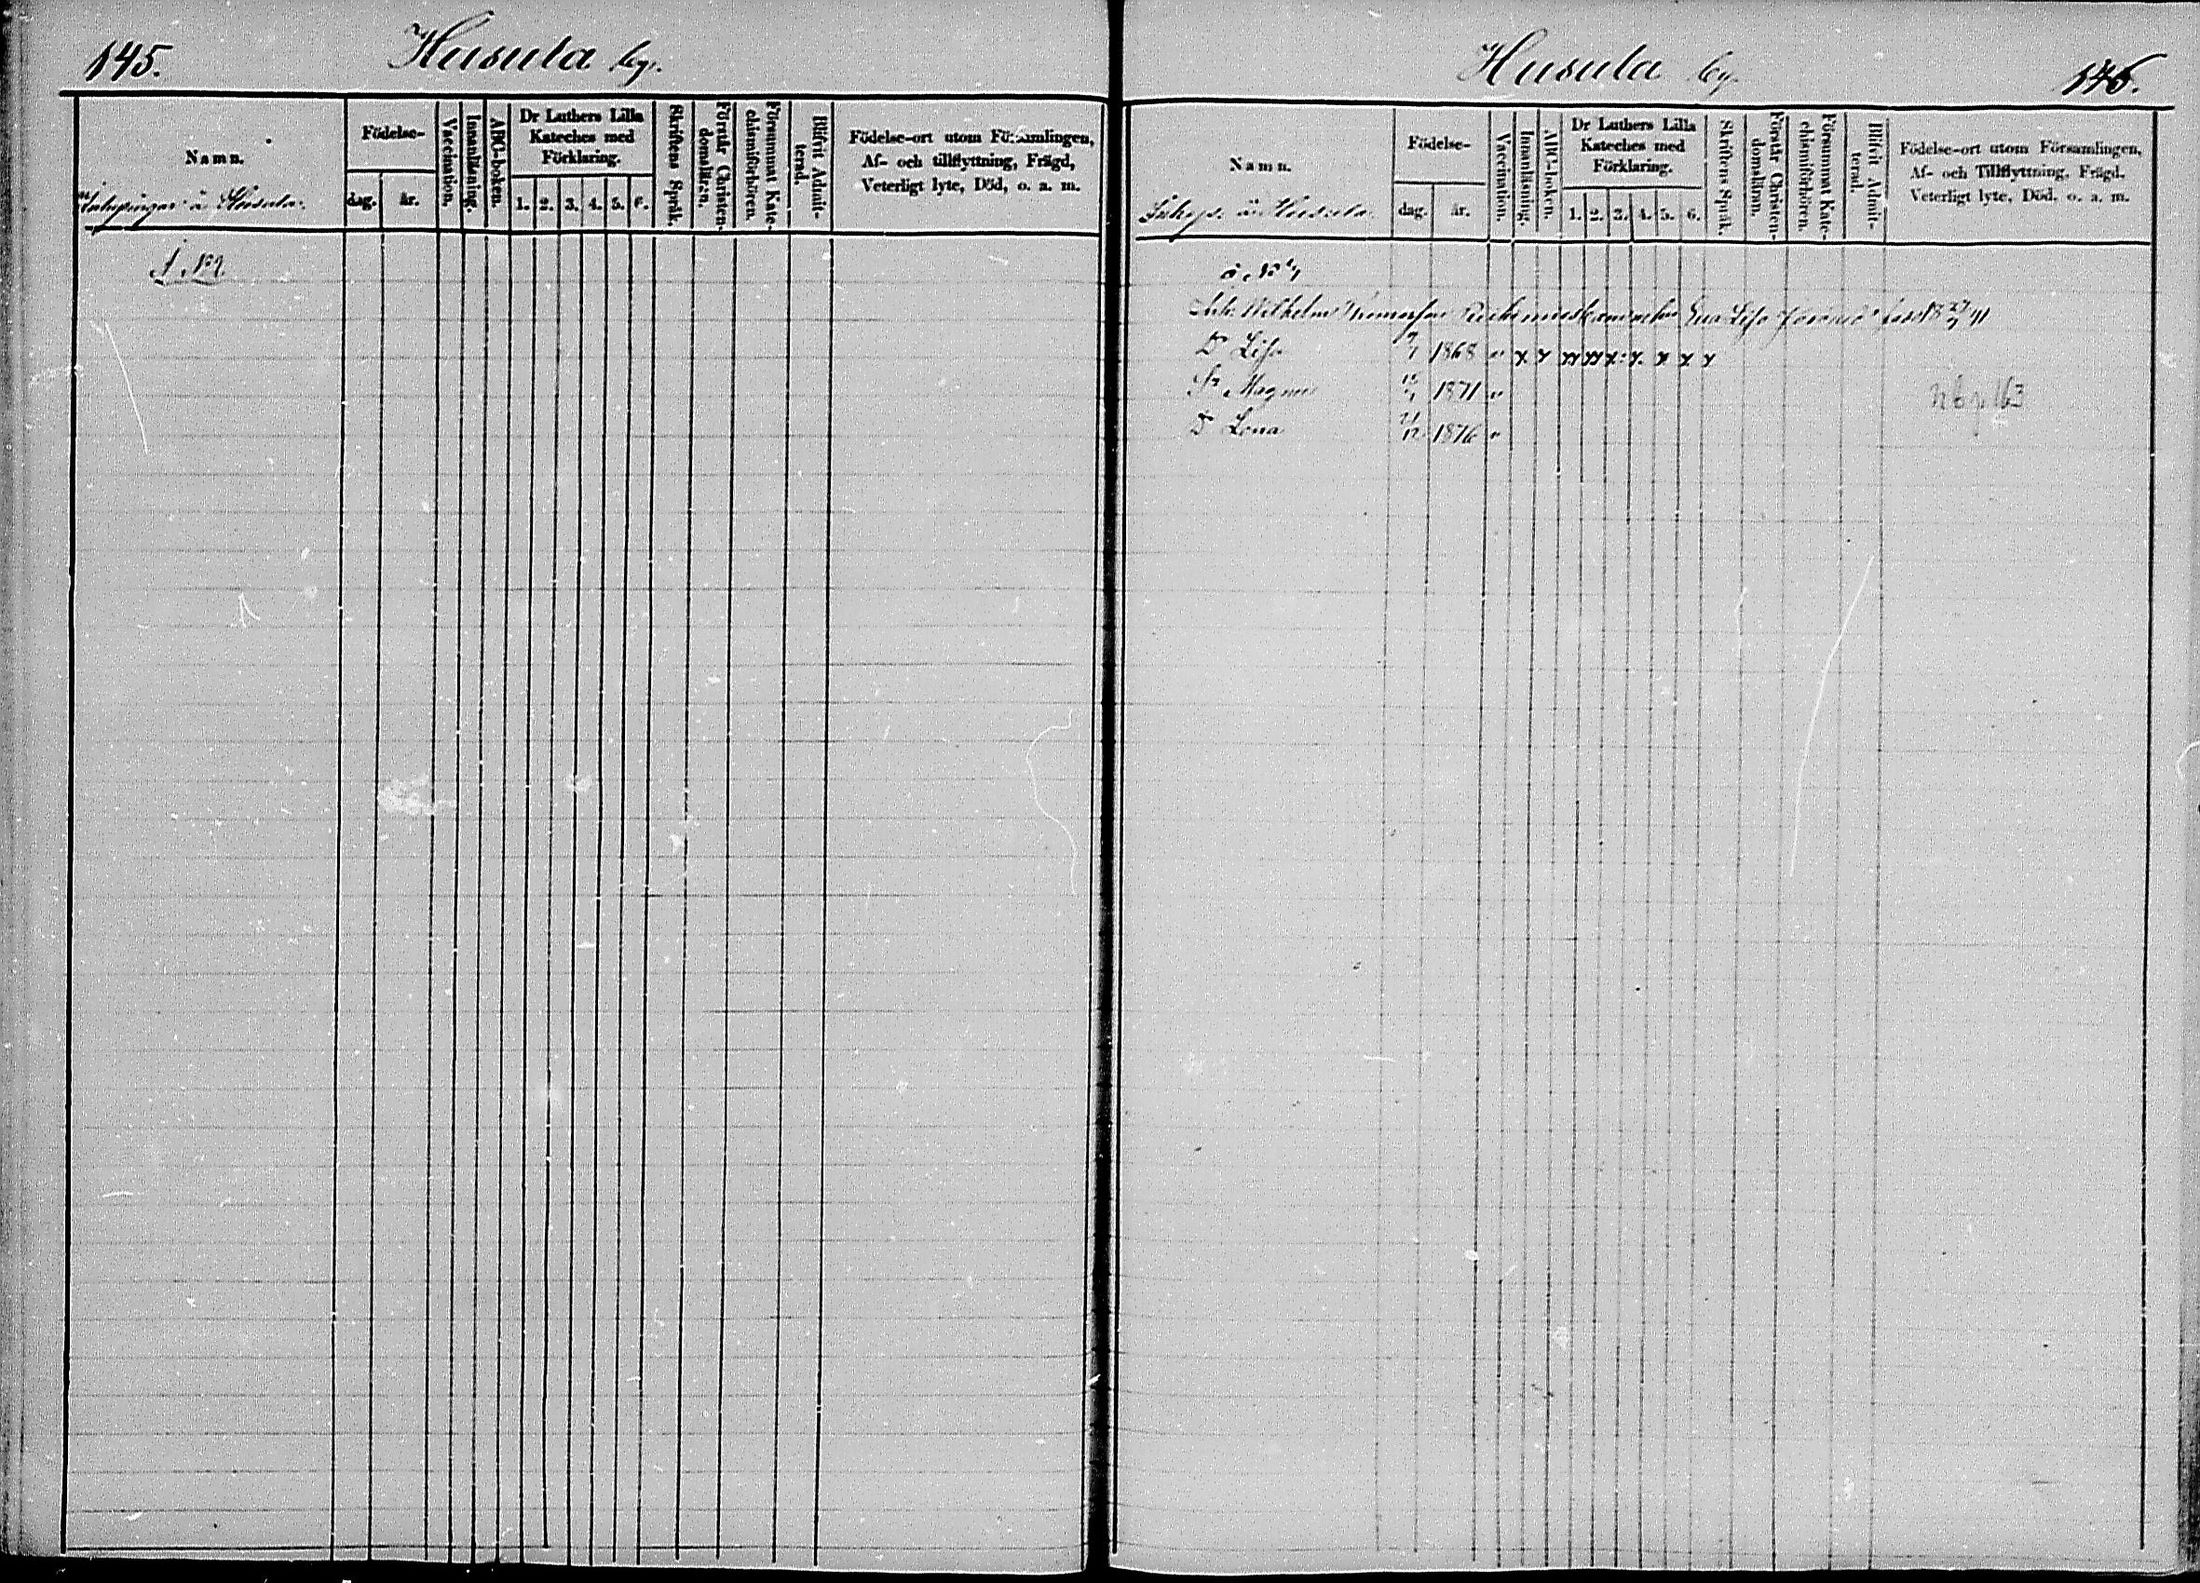 145.
Husula by.
Namn.
Inhysingar å Husula.
Födelse-
dag. år.
Vaccination.
Innanläsning.
ABC-boken.
Dr Luthers Lilla
Kateches med
Förklaring.
1. 2. 3. 4. 5. 6.
Skriftens Språk.
Förstår Christen-
domsläran.
Försummat Kate-
chismiförhören.
Blifvit Admit-
terad.
Födelse-ort utom Församlingen,
Af- och tillflyttning, Frägd,
Veterligt lyte, Död, o. a. m.
Husula by.
146.
Namn.
Inhys. å Husula.
Födelse-
dag. år.
Vaccination.
Innanläsning.
ABC-boken.
Dr Luthers Lilla
Kateches med
Förklaring.
1. 2. 3. 4. 5. 6.
Skriftens Språk.
Förstår Christen-
domsläran.
Försummat Kate-
chismiförhören.
Blifvit Admit-
terad.
Födelse-ort utom Församlingen,
Af- och Tillflyttning, Frägd,
Veterligt lyte, Död, o. a. m.
å No
Wilhelm Eva Lisa
Dr Lisa 1868 " x x xx xx x x x x x
Sn Magnus 1871 "
Dr Lona 1876 "
163